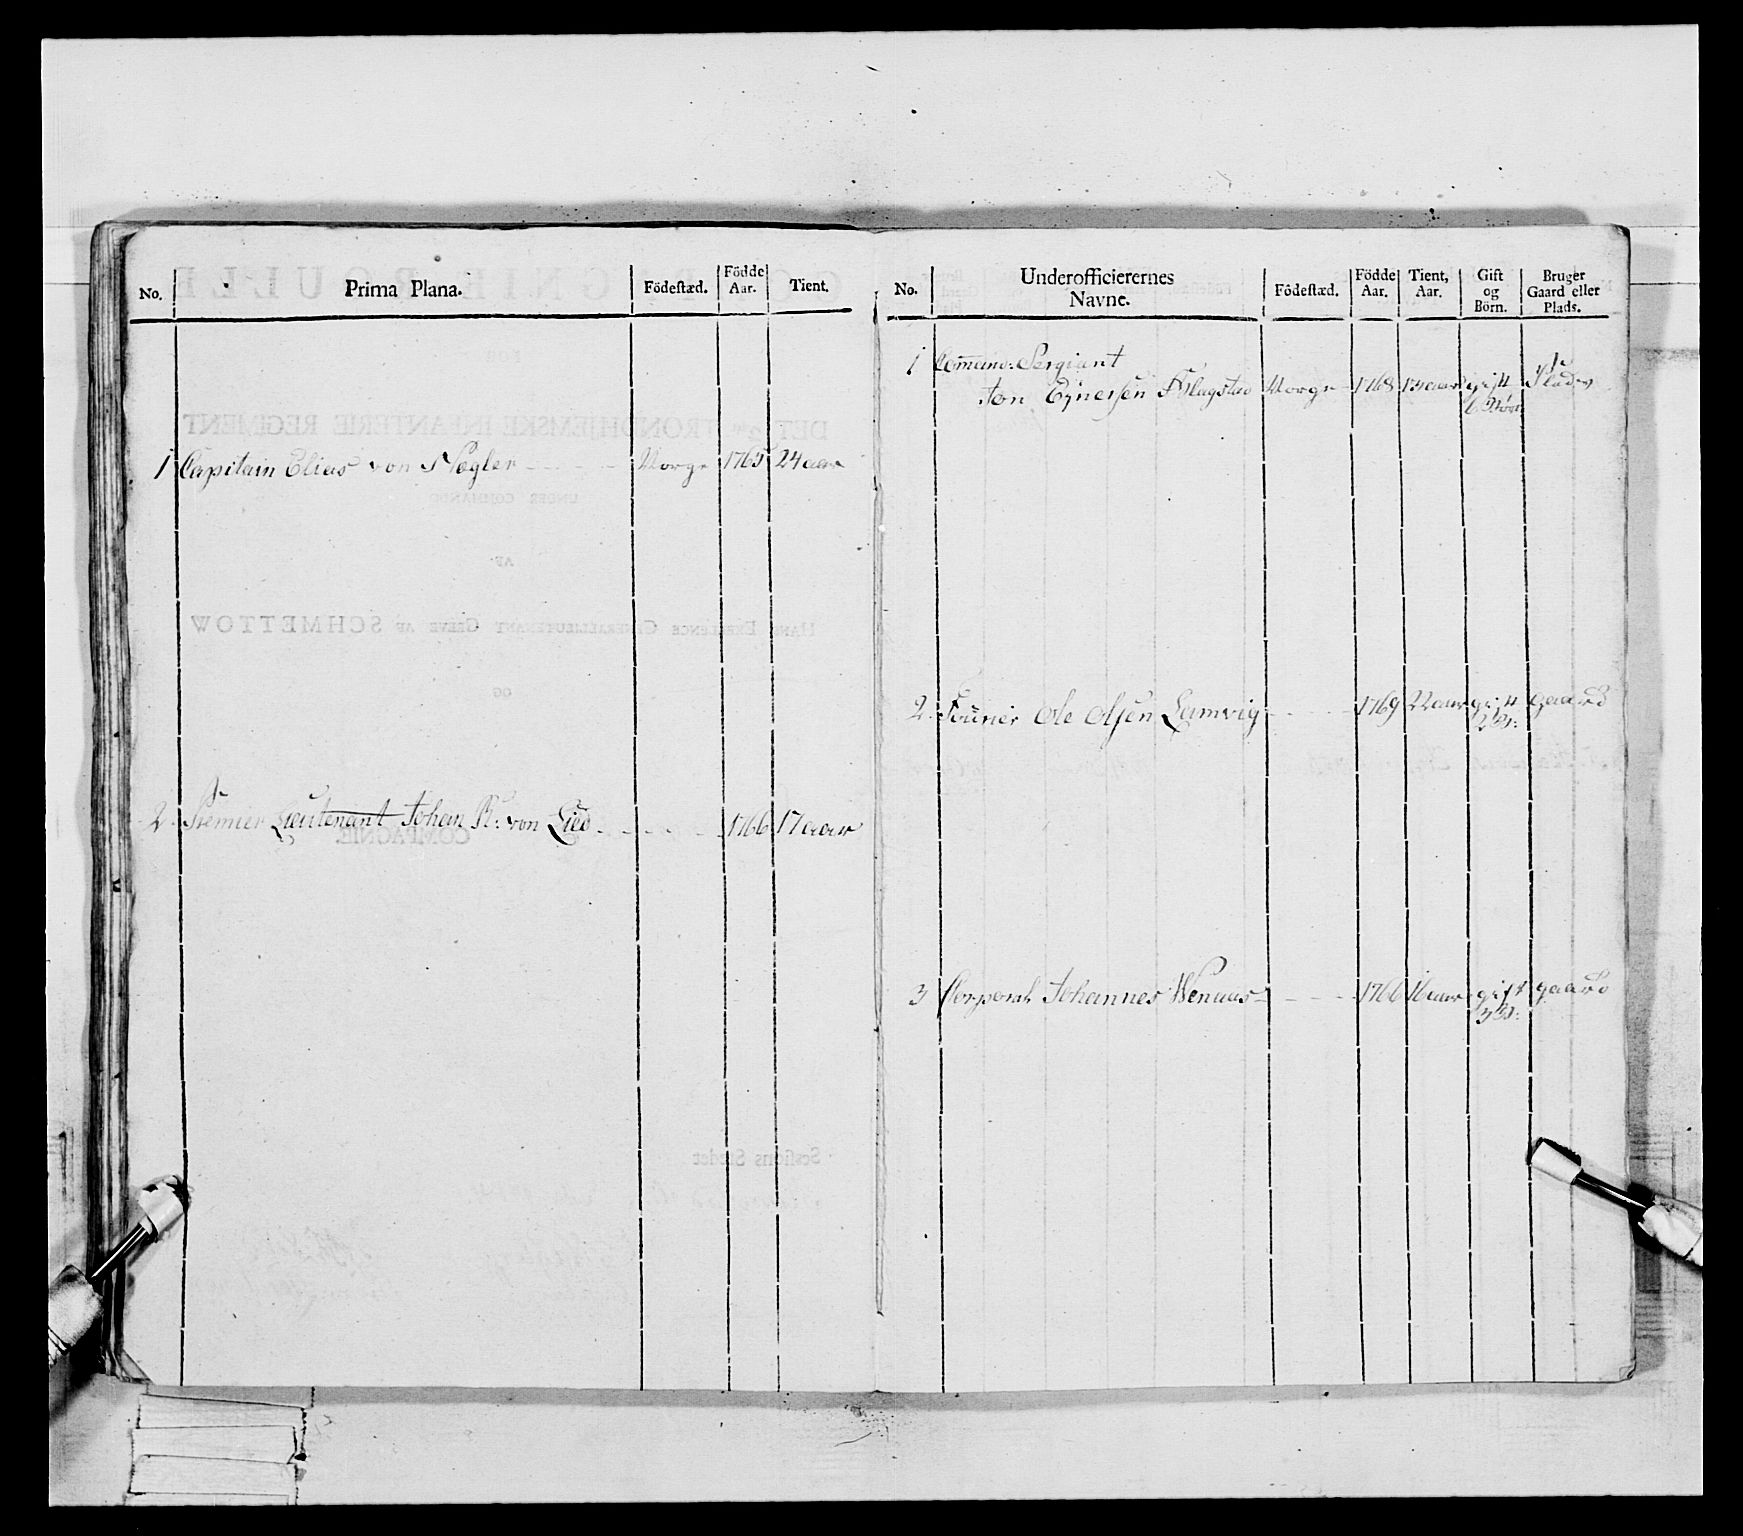 No.
Prima Plana.
Födestæd.
Födde Aar.
Tient.
1 Capitain Elias von Hegler Norge 1765 24 aar
2. Premier Lieutenant Johan von Lied 1766 17 aar
No.
Underofficierernes
Navne.
Födestæd.
Födde Aar.
Tient, Aar.
Gift og Börn.
Bruger Gaard eller Plads.
1 Command: Sergiant
Jon Norge 1768 aar gift Plads
6 Börn
2. Fourier Ole Olsen Lamvig 1769 22 aar gift gaard
2 B:
3 Corporal Johannes Wenaas 1766 16 aar gift gaard
3 B: